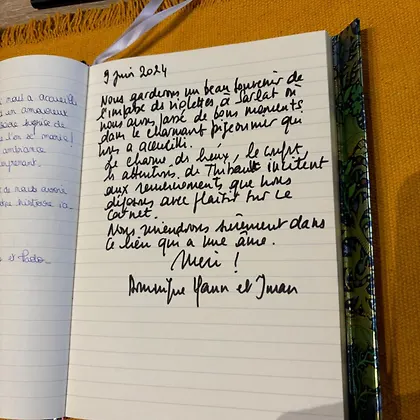 it nous a accueilli
un amoureux
de nous avoir
histoire
9 juin 2024
Nous garderons un beau souvenir de
l'impasse de violettes, à Sarlat où
nous avons passé de bons moments
dans le charmant pigeonnier qui
nous a accueilli.
Le charme du lieux, le confort,
les attentions de Thibault invitent
aux remerciements que nous
déposons avec plaisir sur ce
carnet.
Nous reviendrons sûrement dans
ce lieu qui a une âme.
Merci !
Dominique Yann et Iman